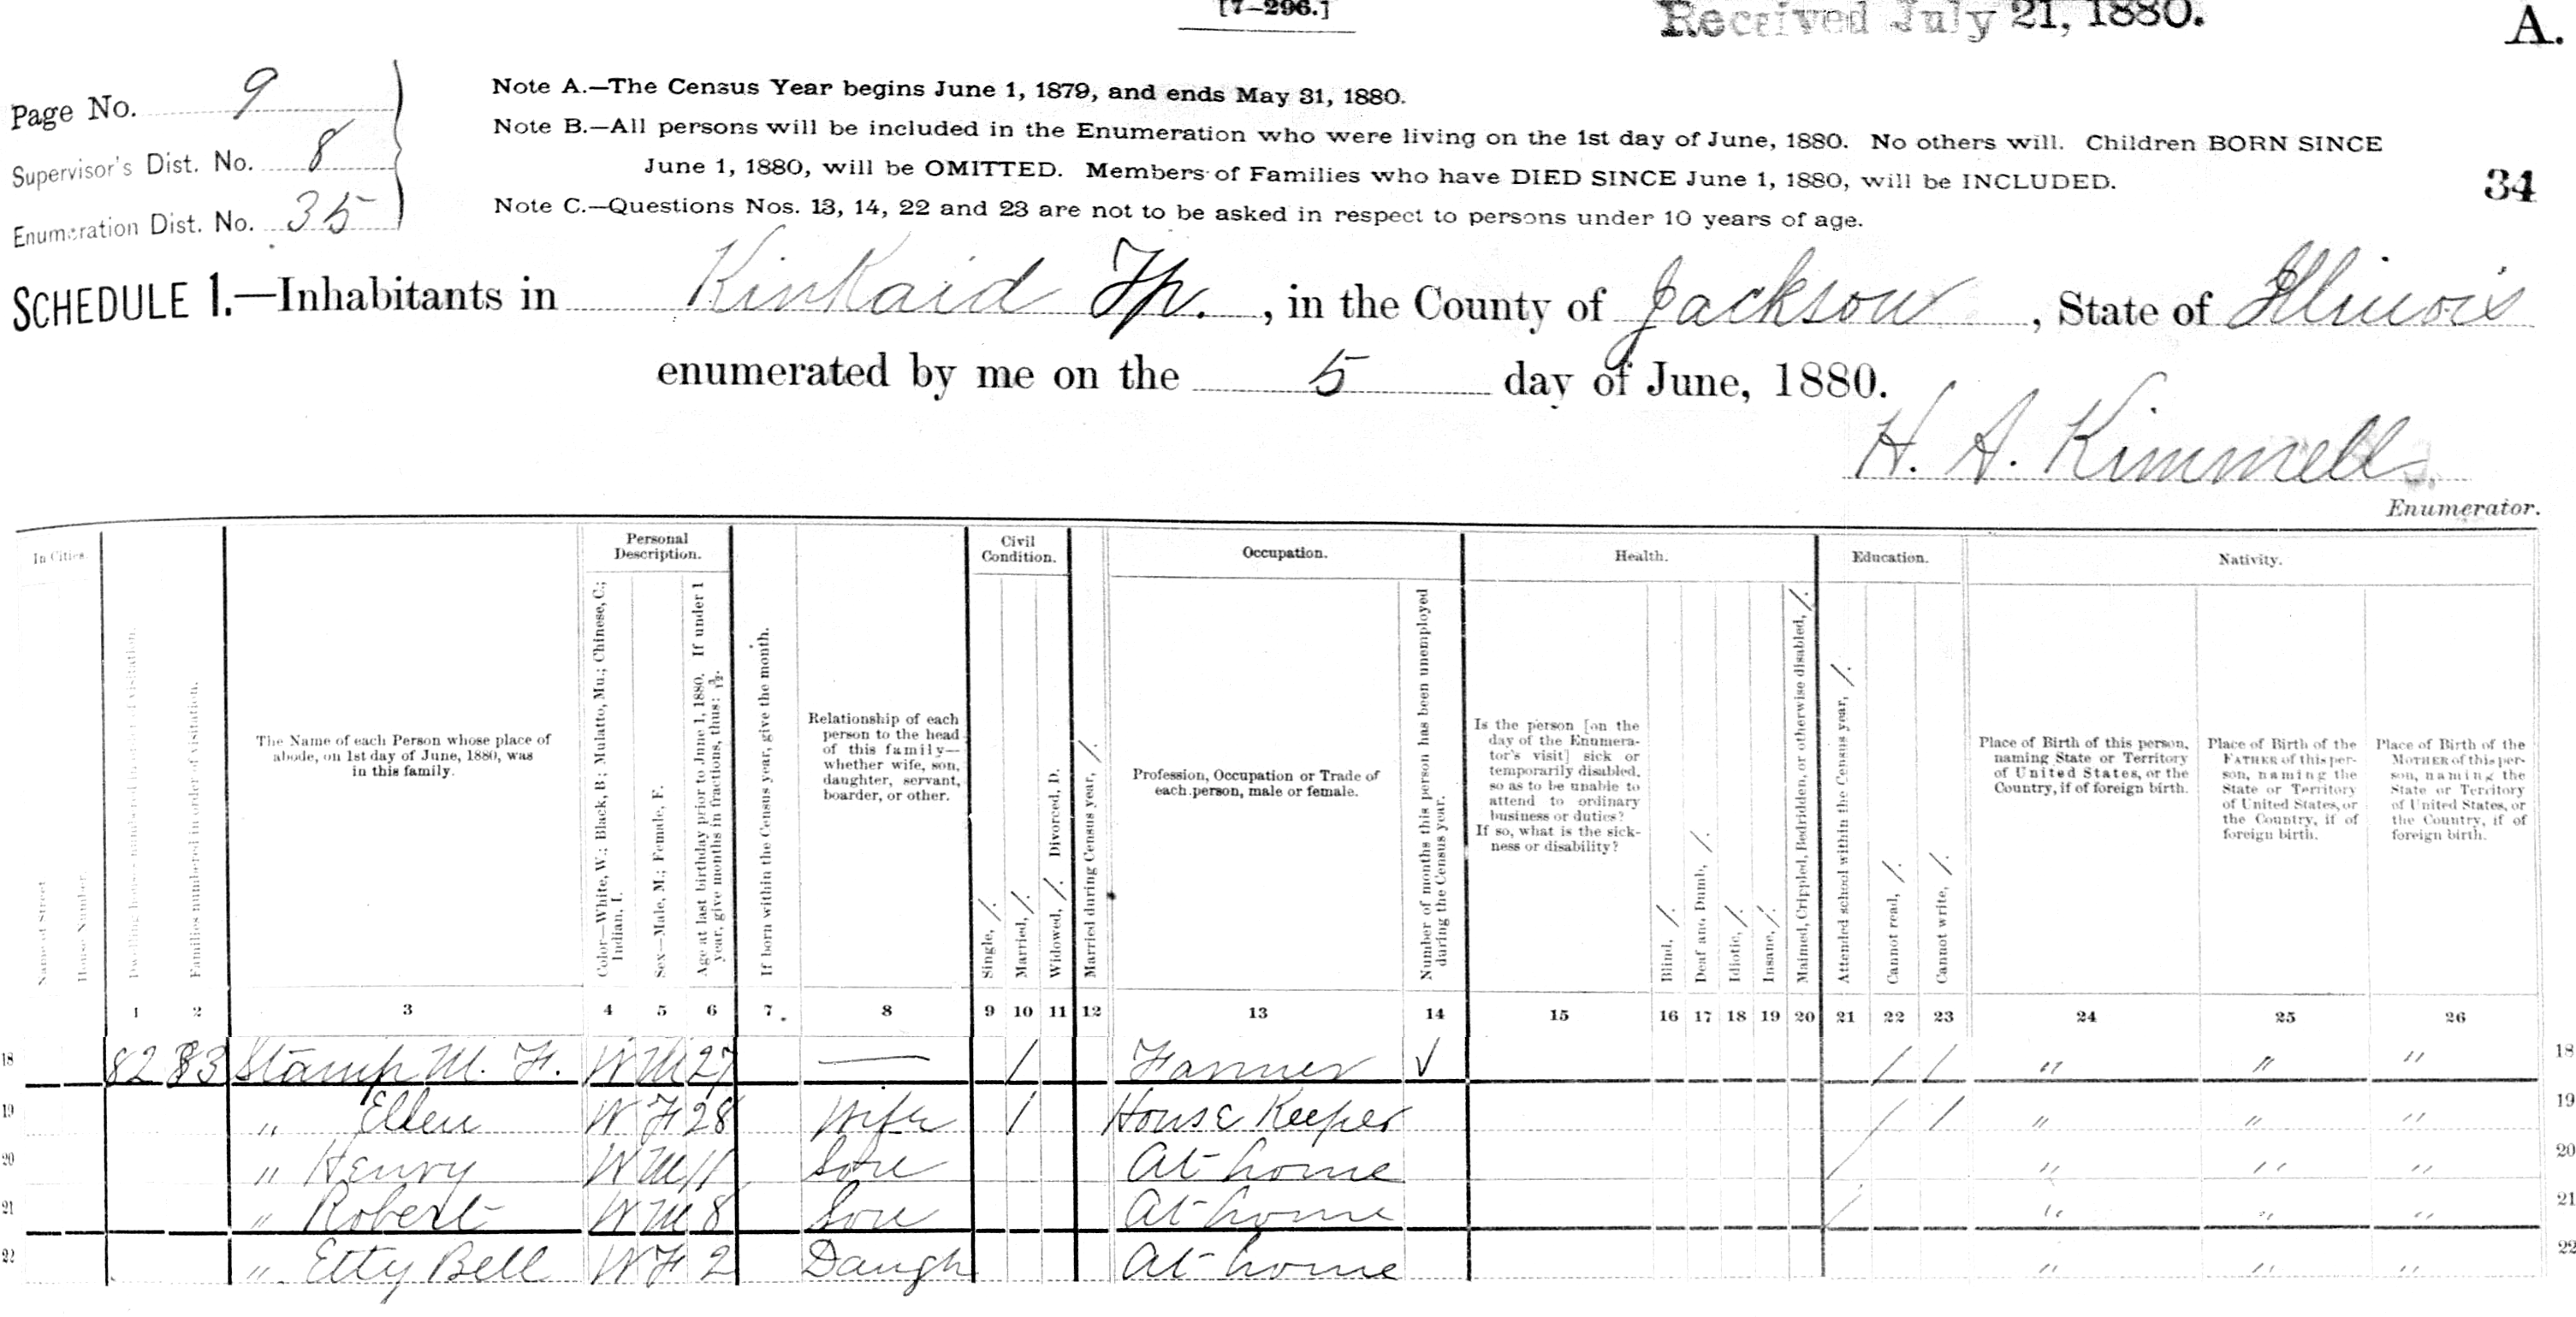 [7—296.]
Received July 21, 1880.
A.
Page No. 9
Supervisor's Dist. No. 8
Enumeration Dist. No. 35
Note A.—The Census Year begins June 1, 1879, and ends May 31, 1880.
Note B.—All persons will be included in the Enumeration who were living on the 1st day of June, 1880. No others will. Children BORN SINCE
June 1, 1880, will be OMITTED. Members of Families who have DIED SINCE June 1, 1880, will be INCLUDED.
Note C.—Questions Nos. 13, 14, 22 and 23 are not to be asked in respect to persons under 10 years of age.
34
SCHEDULE 1.—Inhabitants in KinKaid Tp., in the County of Jackson, State of Illinois
enumerated by me on the 5 day of June, 1880.
H. A. Kimmell
Enumerator.
In Cities.
Name of Street
House Number.
Dwelling houses numbered in order of visitation.
Families numbered in order of visitation.
The Name of each Person whose place of
abode, on 1st day of June, 1880, was
in this family.
Personal
Description.
Color—White, W.; Black, B.; Mulatto, Mu.; Chinese, C.;
Indian, I.
Sex—Male, M.; Female, F.
Age at last birthday prior to June 1, 1880. If under 1
year, give months in fractions, thus: 3/12.
If born within the Census year, give the month.
Relationship of each
person to the head
of this family—
whether wife, son,
daughter, servant,
boarder, or other.
Civil
Condition.
Single, /.
Married, /.
Widowed, /. Divorced, D.
Married during Census year, /.
Occupation.
Profession, Occupation or Trade of
each person, male or female.
Number of months this person has been unemployed
during the Census year.
Health.
Is the person [on the
day of the Enumera-
tor's visit] sick or
temporarily disabled,
so as to be unable to
attend to ordinary
business or duties?
If so, what is the sick-
ness or disability?
Blind, /.
Deaf and Dumb, /.
Idiotic, /.
Insane, /.
Maimed, Crippled, Bedridden, or otherwise disabled, /.
Education.
Attended school within the Census year, /.
Cannot read, /.
Cannot write, /.
Nativity.
Place of Birth of this person,
naming State or Territory
of United States, or the
Country, if of foreign birth.
Place of Birth of the
FATHER of this per-
son, naming the
State or Territory
of United States, or
the Country, if of
foreign birth.
Place of Birth of the
MOTHER of this per-
son, naming the
State or Territory
of United States, or
the Country, if of
foreign birth.
1 2 3 4 5 6 7 8 9 10 11 12 13 14 15 16 17 18 19 20 21 22 23 24 25 26
18 82 83 Stamp M. F. W M 27 — / Farmer ✓ / / " " " 18
19 " Ellen W F 28 Wife / House Keeper / / " " " 19
20 " Henry W M 11 Son At home / " " " 20
21 " Robert W M 8 Son At home / " " " 21
22 " Etty Bell W F 2 Daugh At home " " " 22